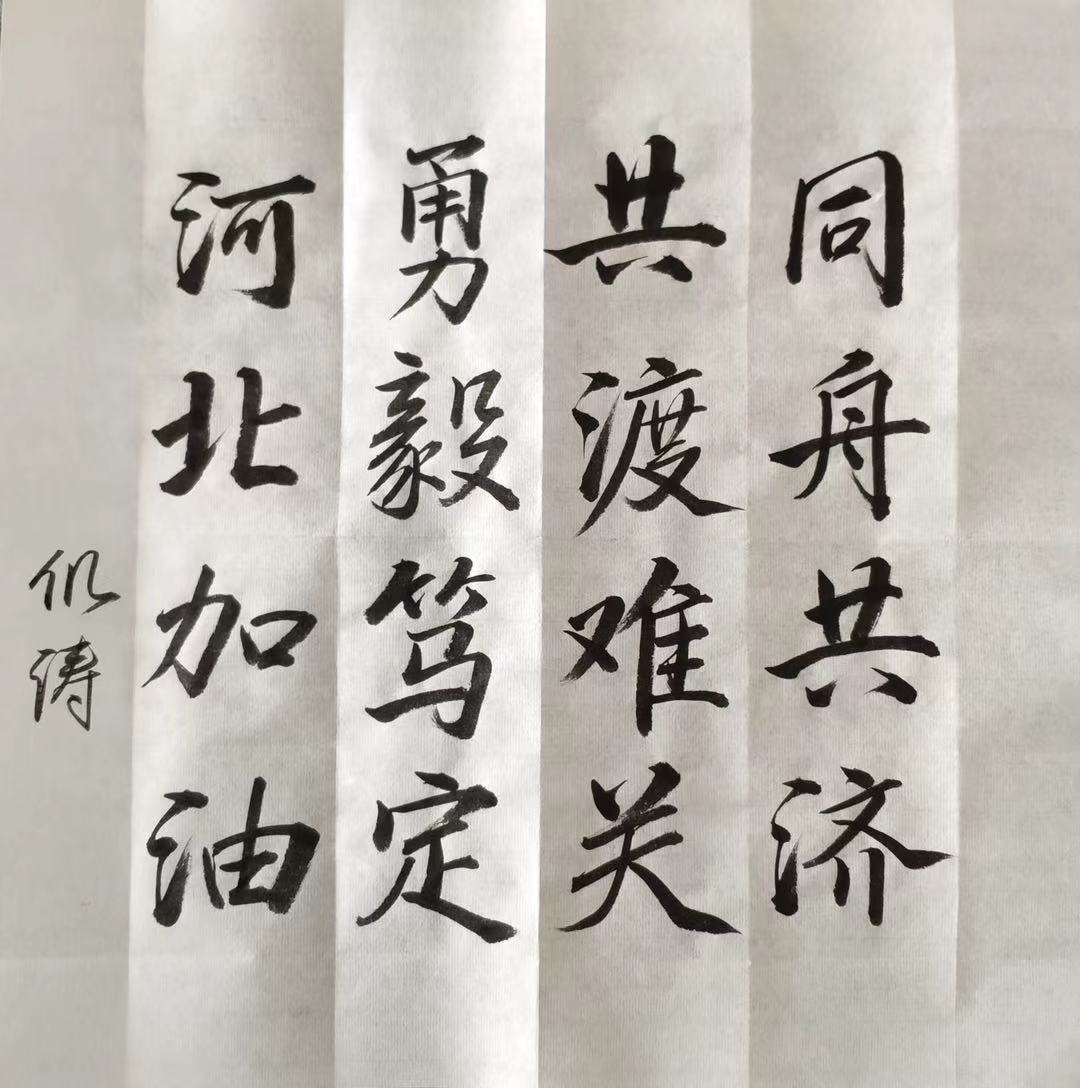 同舟共济
共渡难关
勇毅笃定
河北加油
涛